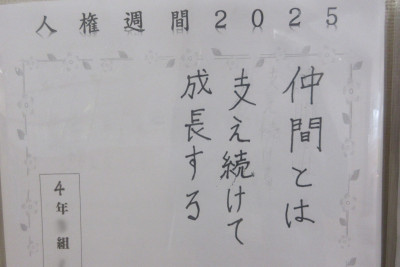 人権週間2025
仲間とは
支え続けて
成長する
4年 組